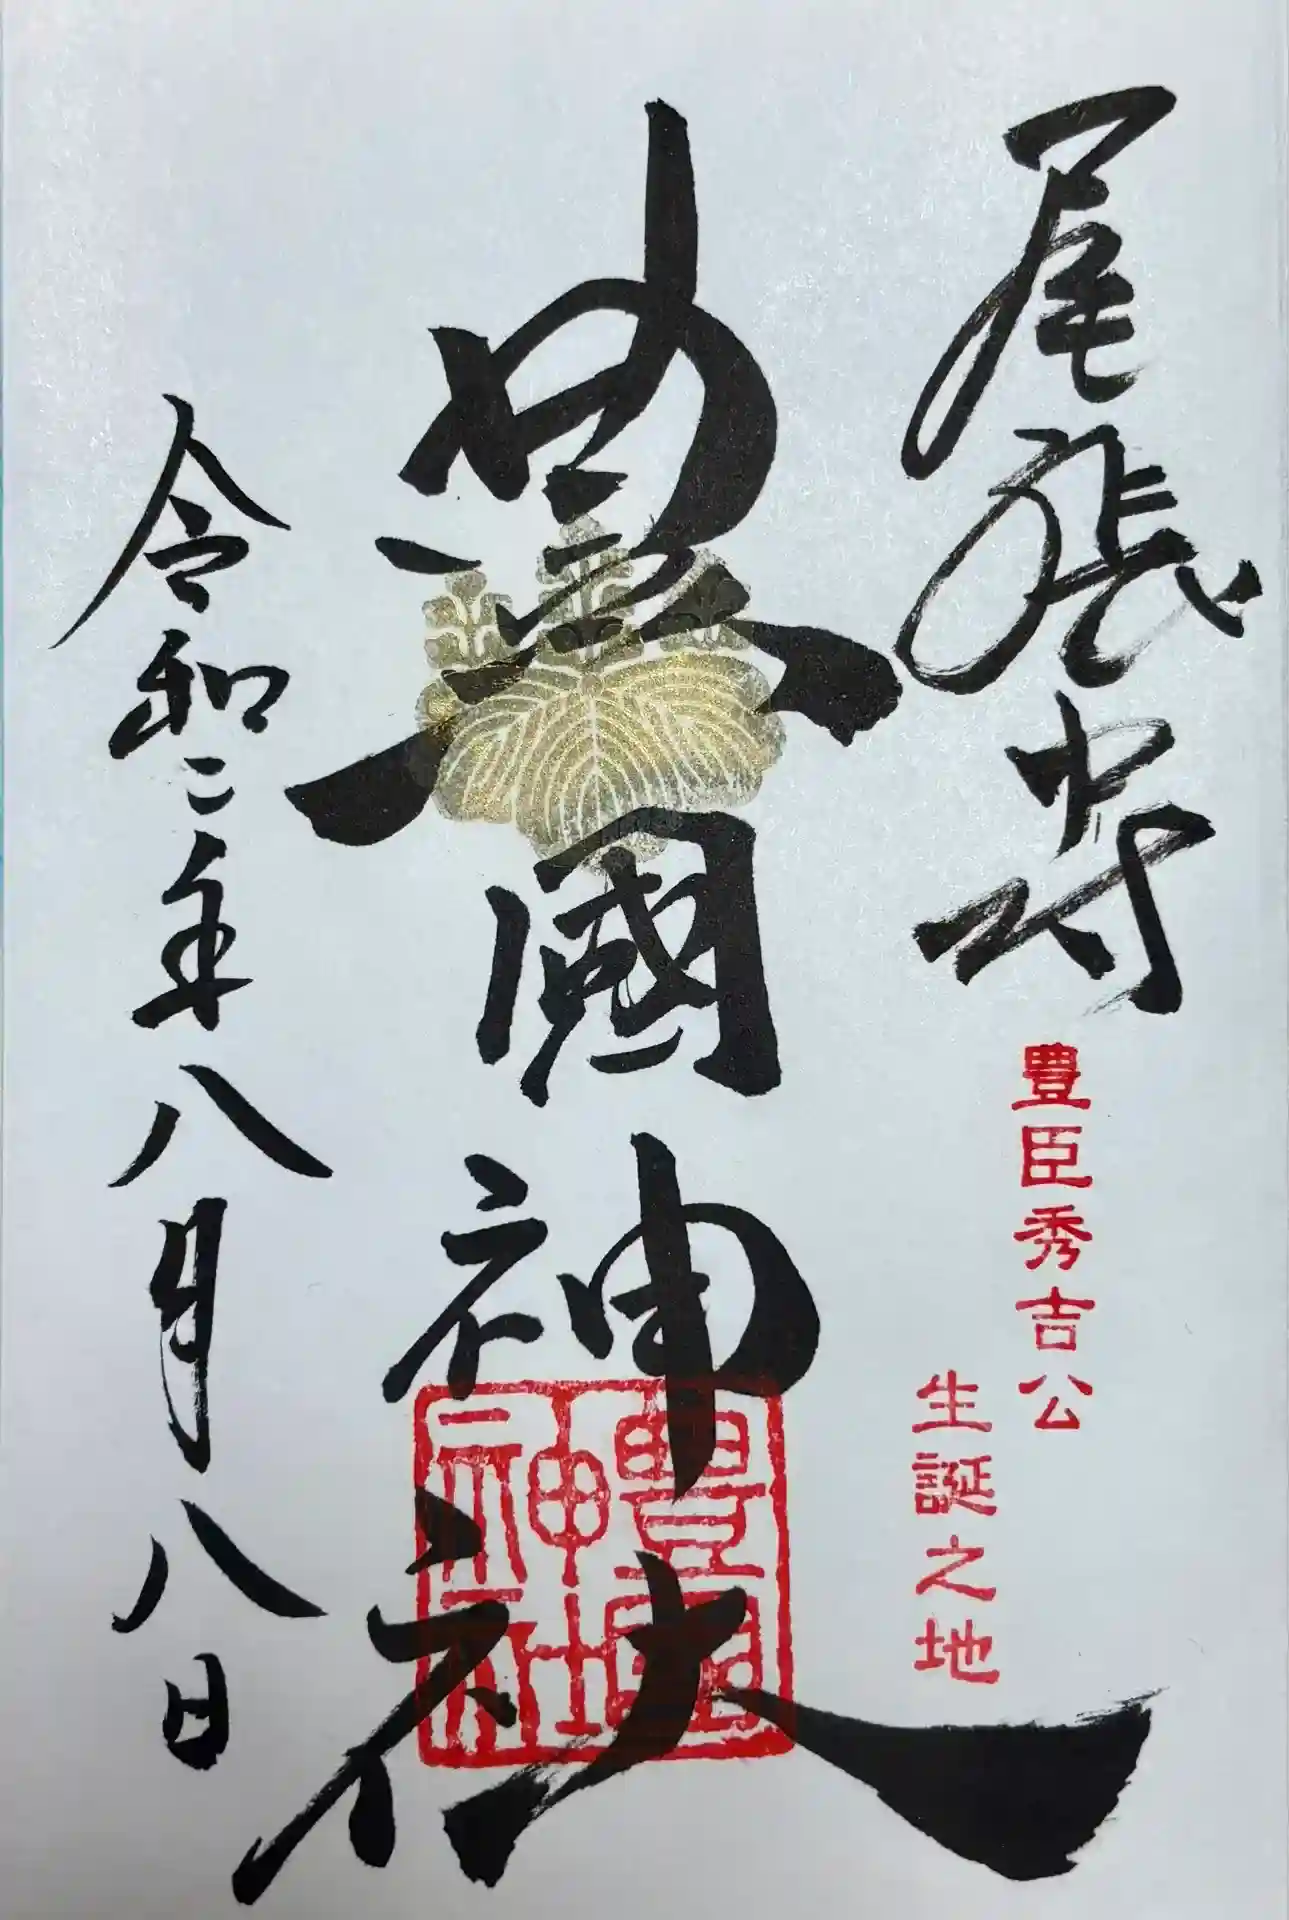 尾張中村
豊臣秀吉公
生誕之地
豊國神社
豊國神社
令和二年八月八日